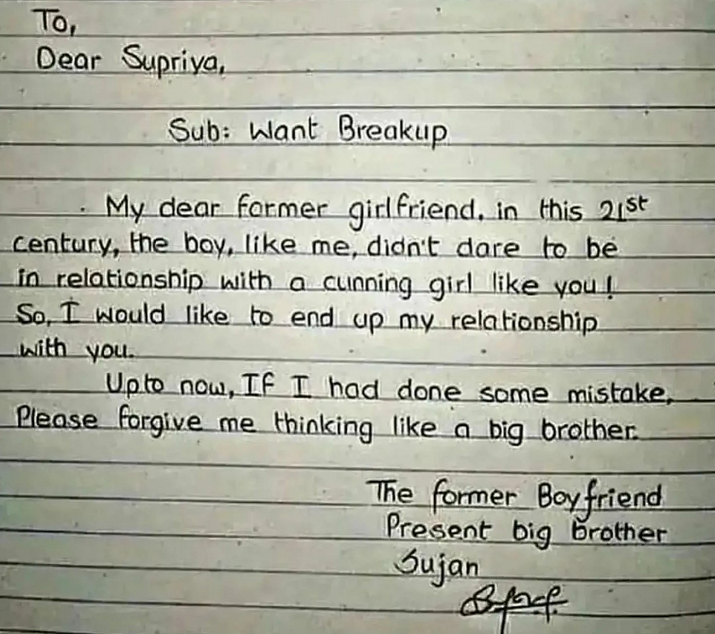 To,
Dear Supriya,
Sub: Want Breakup
My dear former girlfriend, in this 21st
century, the boy, like me, didn't dare to be
in relationship with a cunning girl like you!
So, I would like to end up my relationship
with you.
Upto now, If I had done some mistake,
Please forgive me thinking like a big brother.
The former Boyfriend
Present big brother
Sujan